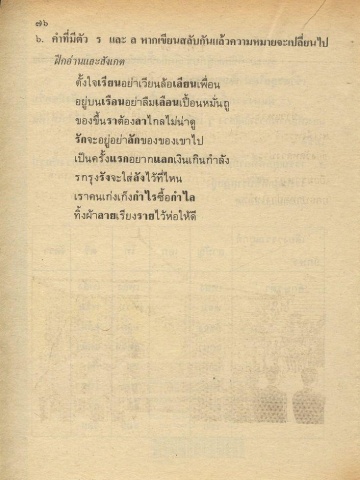 ๗๖
๖. คำที่มีตัว ร และ ล หากเขียนสลับกันแล้วความหมายจะเปลี่ยนไป
ฝึกอ่านและสังเกต
ตั้งใจเรียนอย่าเวียนล้อเลียนเพื่อน
อยู่บนเรือนอย่าลืมเลือนเปื้อนหมั่นถู
ของขึ้นราต้องลาไกลไม่น่าดู
รักจะอยู่อย่าลักของของเขาไป
เป็นครั้งแรกอยากแลกเงินเกินกำลัง
รกรุงรังจะใส่ลังไว้ที่ไหน
เราคนเก่งเก็งกำไรซื้อกำไล
ทิ้งผ้าลายเรียงรายไว้ห่อให้ดี